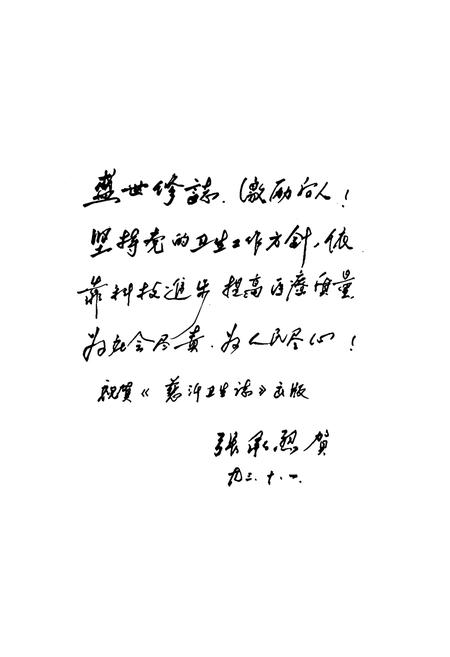 盛世修誌、激励后人！
坚持党的卫生工作方針，依
靠科技進步提高医療质量
为社会尽責、为人民尽心！
祝贺《慈沂卫生志》出版
張承烈 贺
九三.十.一.